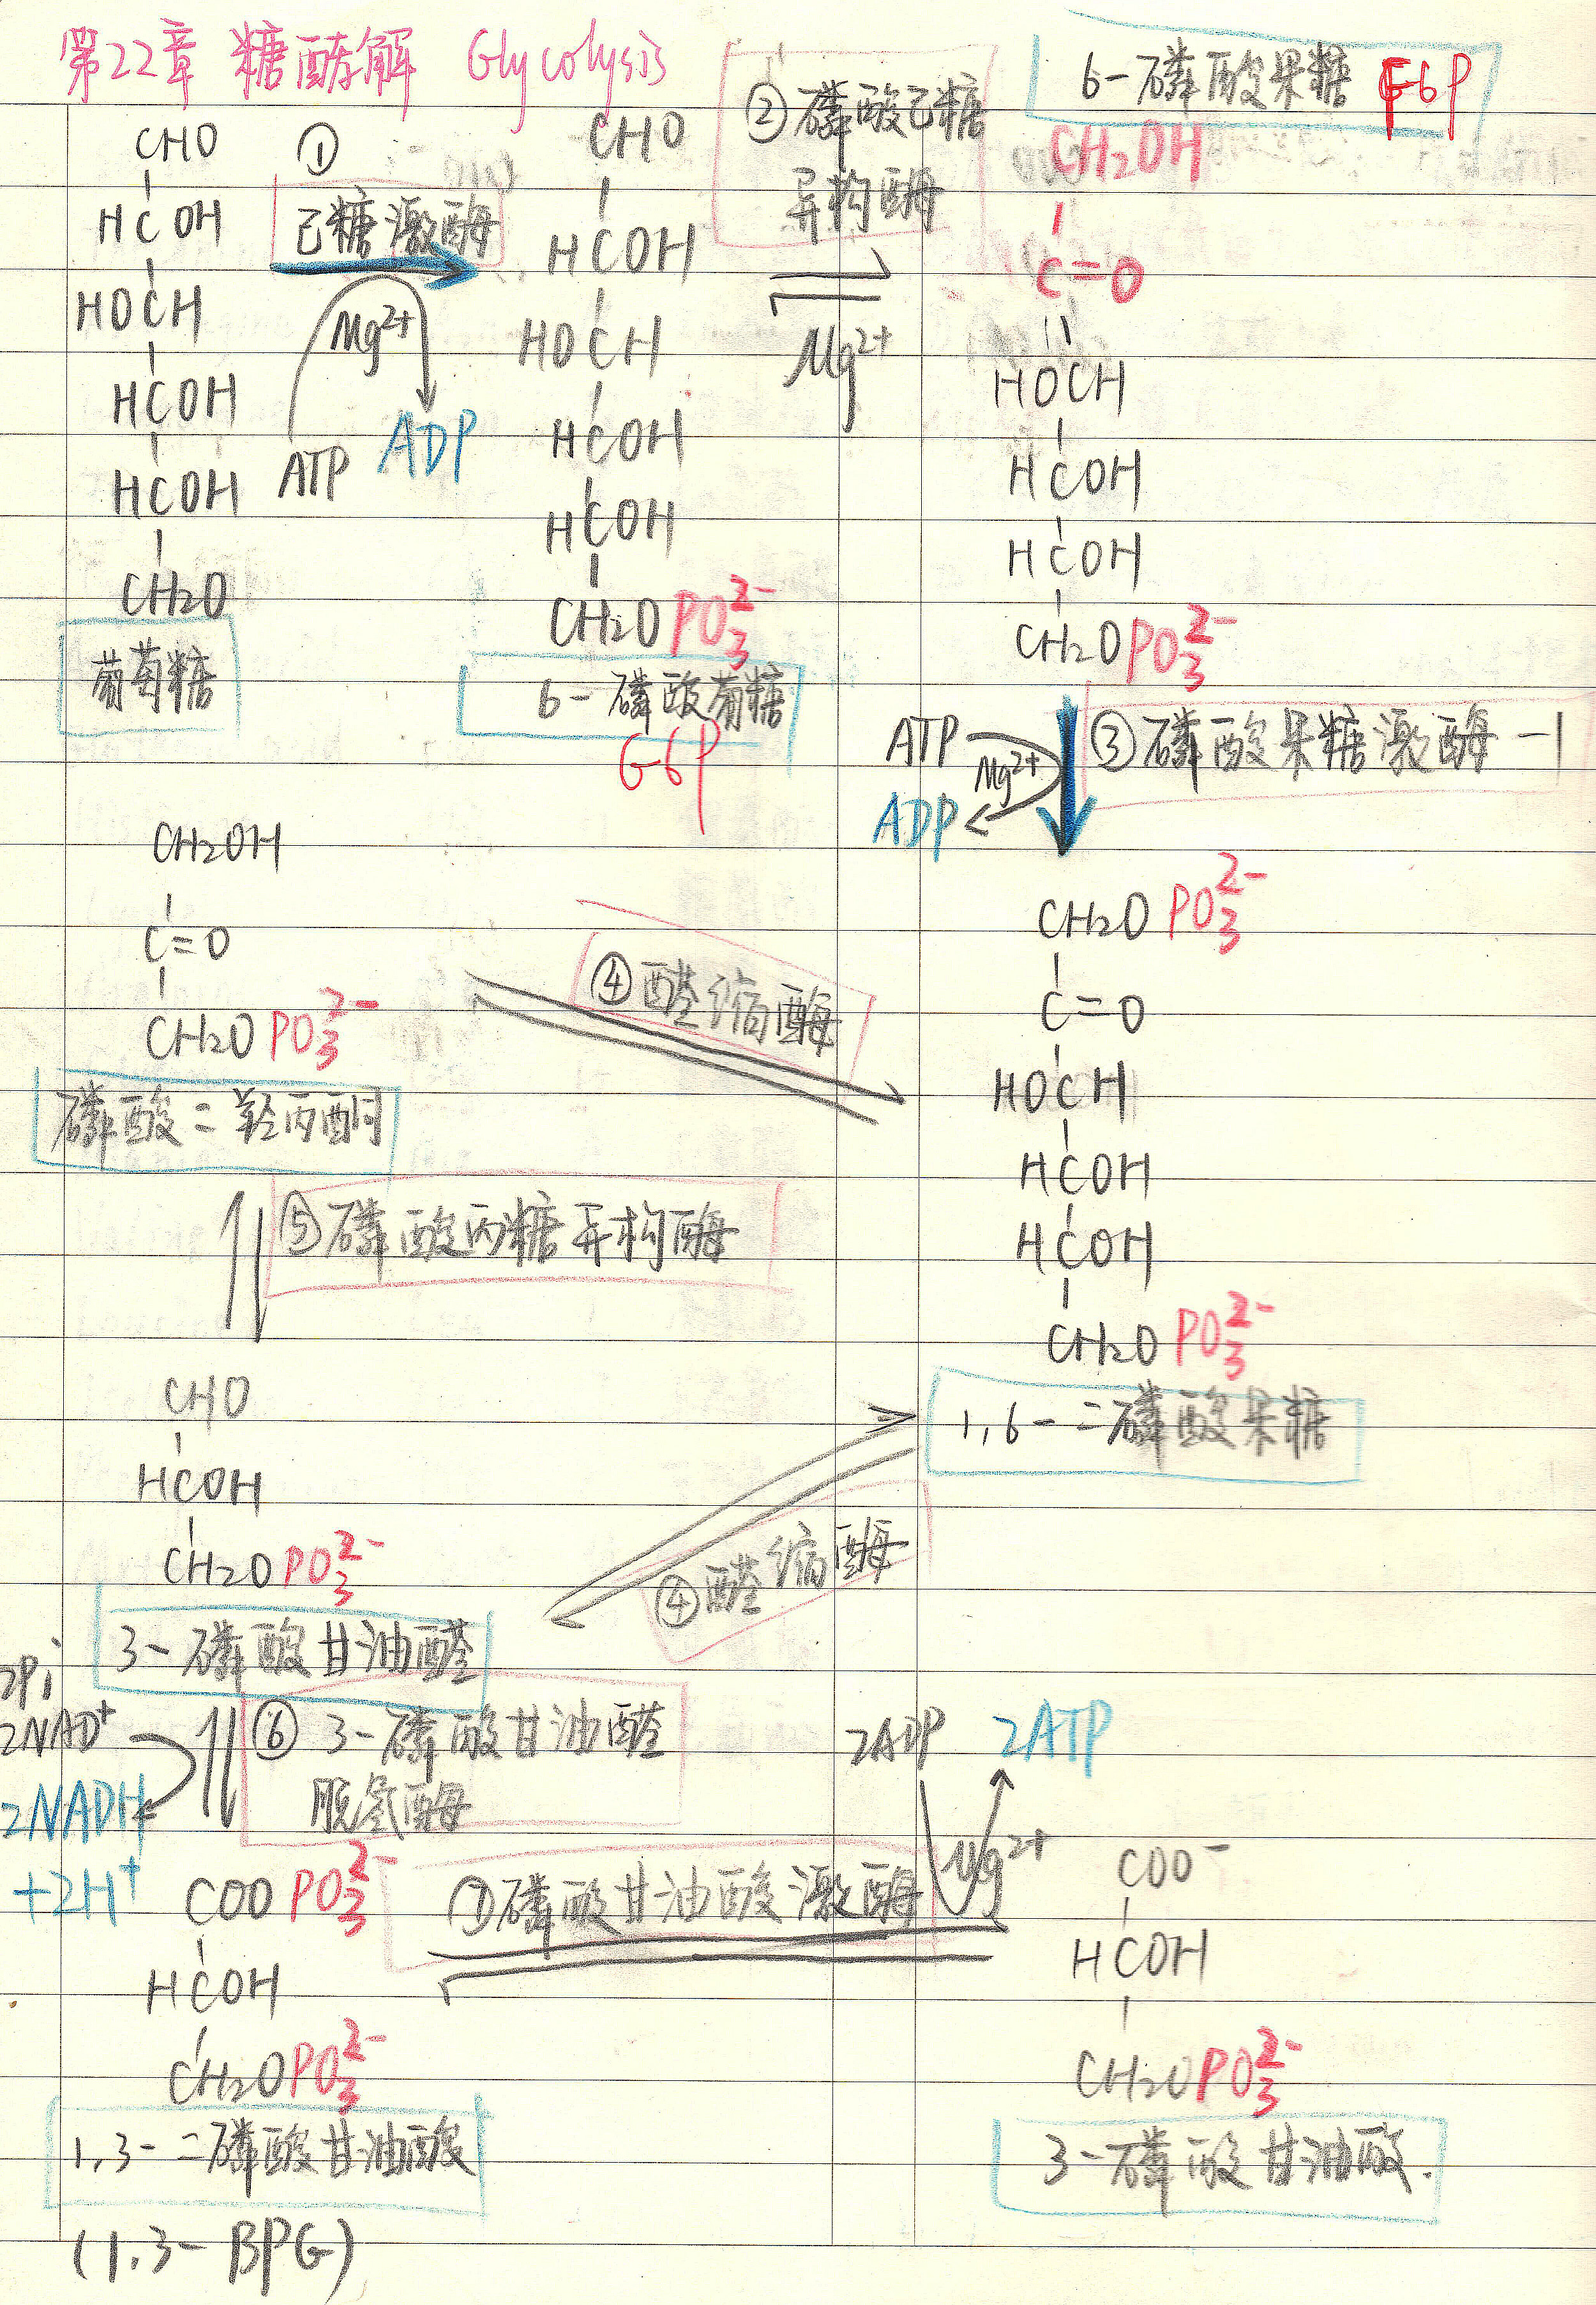 第22章 糖酵解 Glycolysis
CHO
HCOH
HOCH
HCOH
HCOH
CH₂O
葡萄糖
①
己糖激酶
Mg²⁺
ATP ADP
CHO
HCOH
HOCH
HCOH
HCOH
CH₂OPO₃²⁻
6-磷酸葡糖
G6P
②磷酸己糖
异构酶
Mg²⁺
6-磷酸果糖 F6P
CH₂OH
C=O
HOCH
HCOH
HCOH
CH₂OPO₃²⁻
ATP
Mg²⁺
ADP
③磷酸果糖激酶-1
CH₂OPO₃²⁻
C=O
HOCH
HCOH
HCOH
CH₂OPO₃²⁻
1,6-二磷酸果糖
④醛缩酶
CH₂OH
C=O
CH₂OPO₃²⁻
磷酸二羟丙酮
⑤磷酸丙糖异构酶
CHO
HCOH
CH₂OPO₃²⁻
3-磷酸甘油醛
④醛缩酶
2Pi
2NAD⁺
2NADH
+2H⁺
⑥ 3-磷酸甘油醛
脱氢酶
COOPO₃²⁻
HCOH
CH₂OPO₃²⁻
1,3-二磷酸甘油酸
(1,3-BPG)
⑦磷酸甘油酸激酶
2ADP 2ATP
Mg²⁺
COO⁻
HCOH
CH₂OPO₃²⁻
3-磷酸甘油酸.